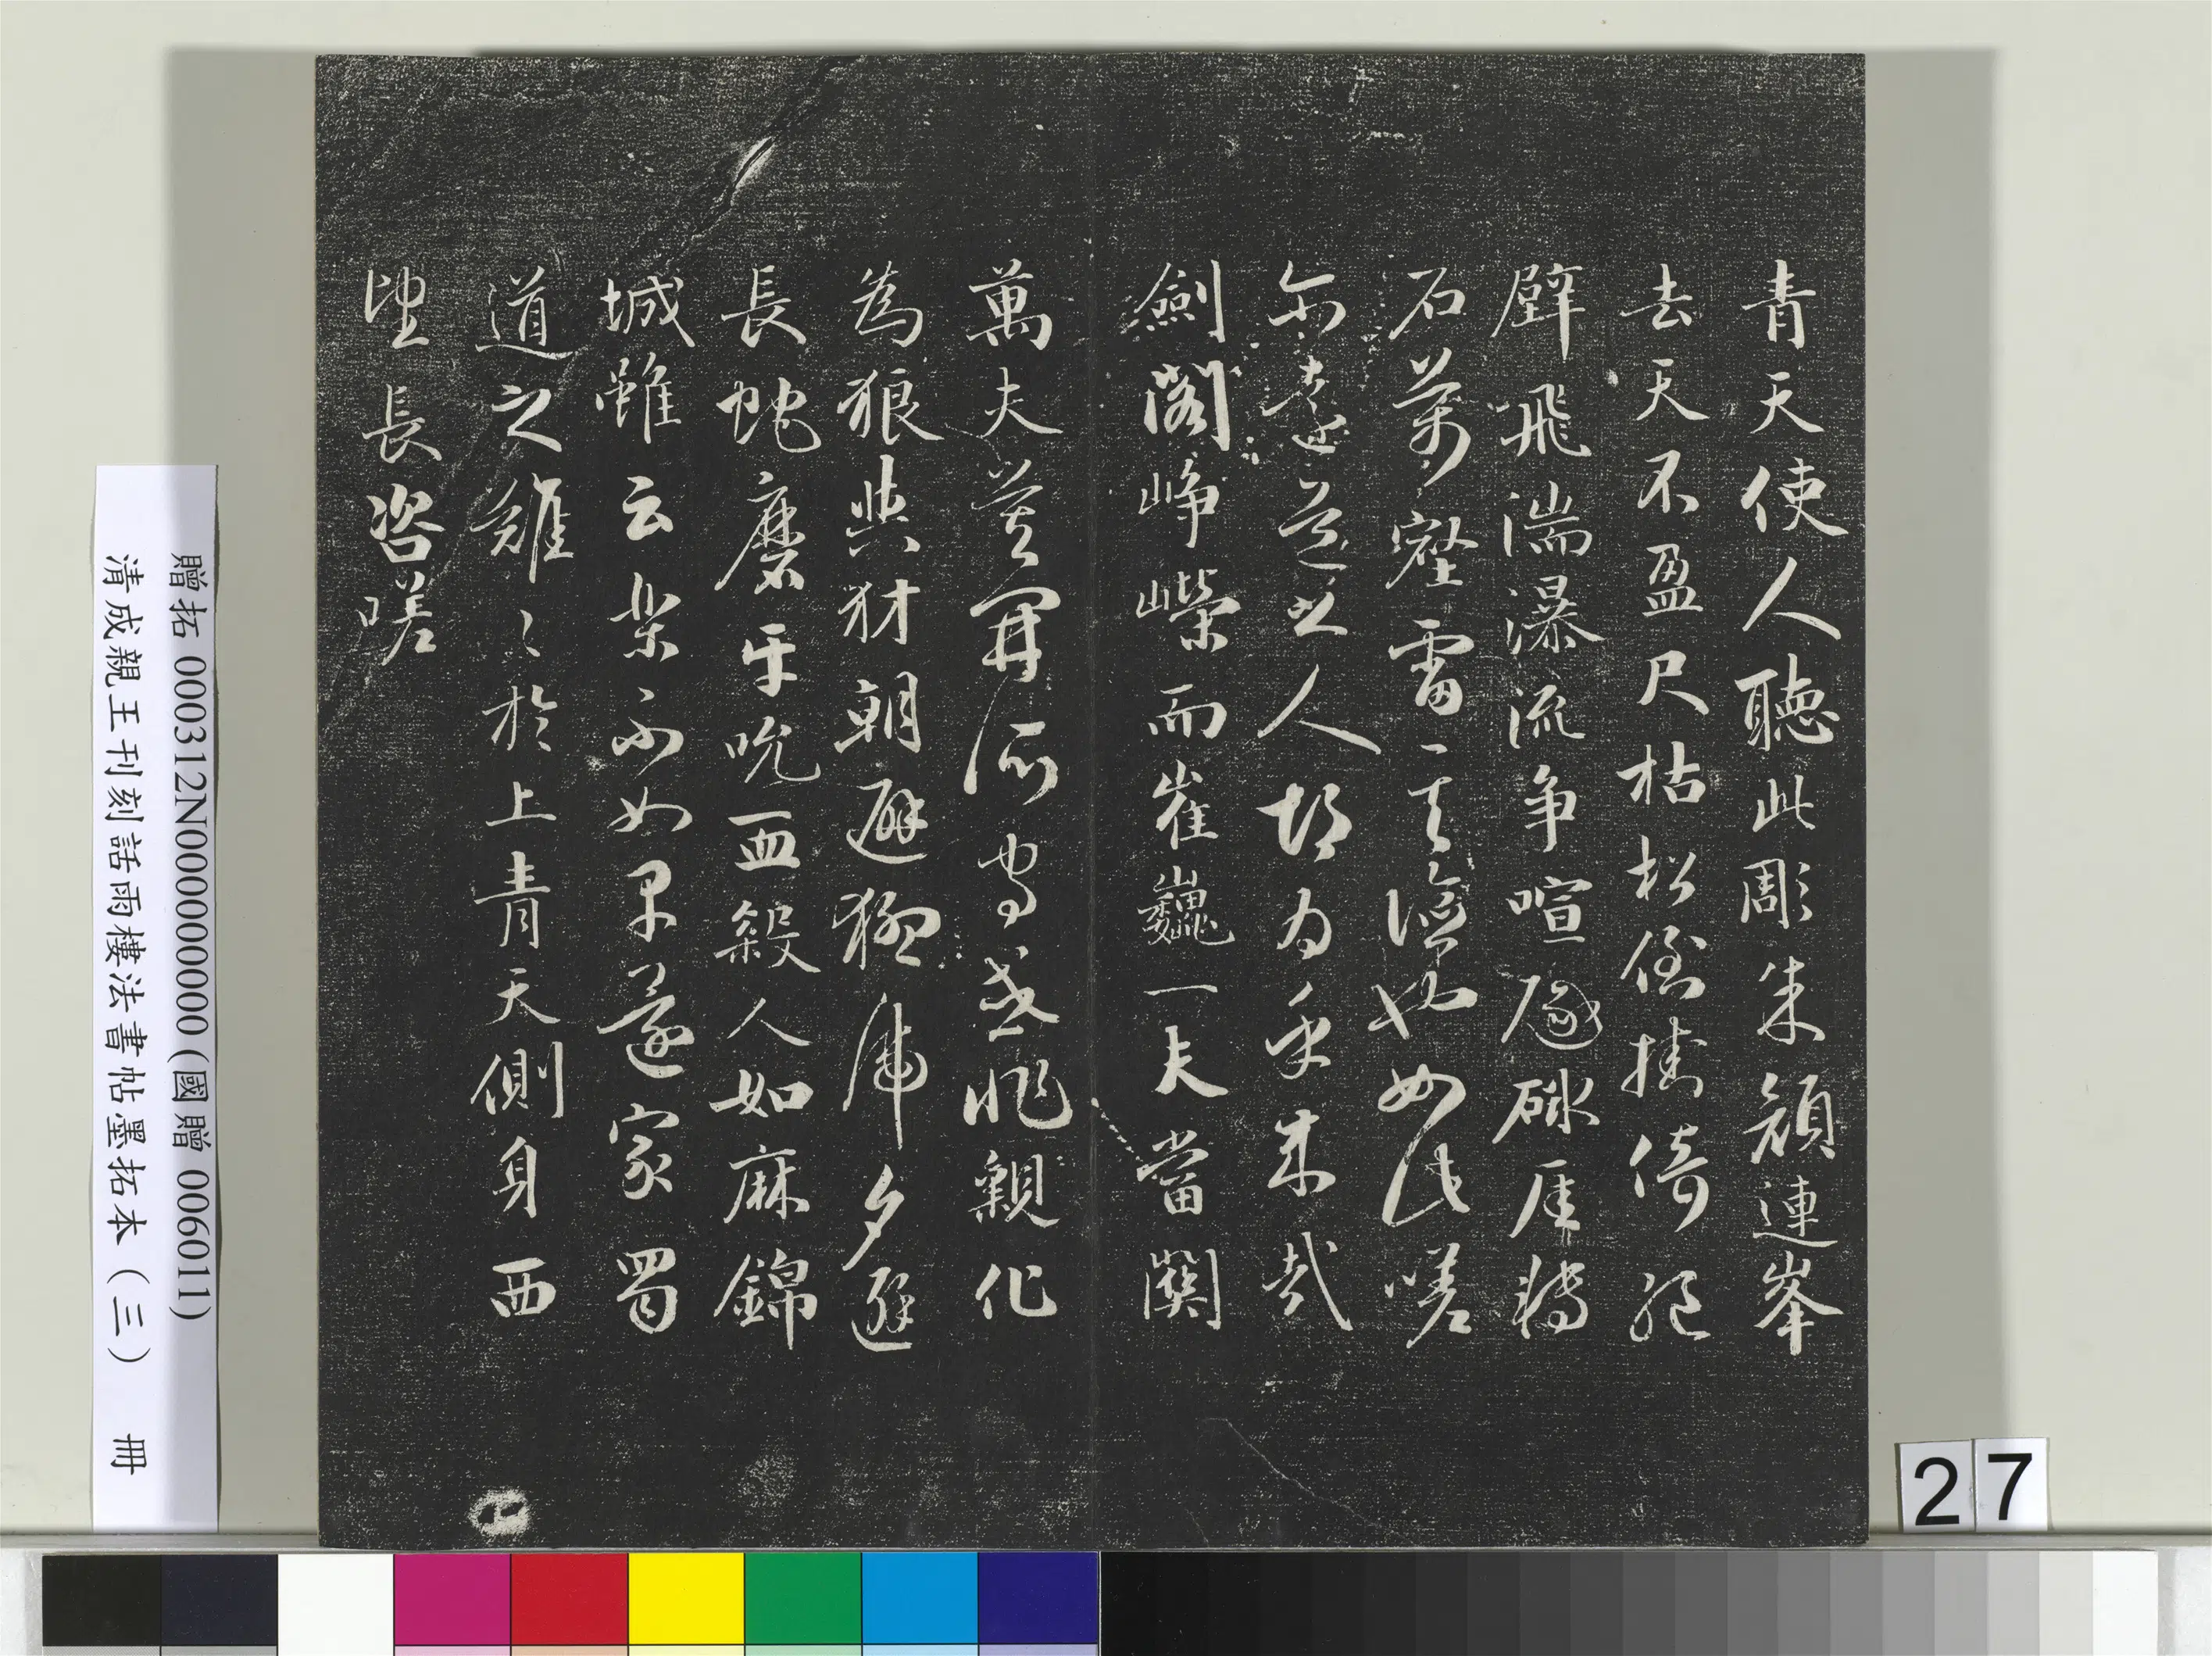 青天使人聽此彫朱顔連峯
去天不盈尺枯松倒挂倚絕
壁飛湍瀑流争喧豗砯厓轉
石萬壑雷其險也如此嗟
尔遠道之人胡为乎来哉
劍閣峥嶸而崔巍一夫當關
萬夫莫開所守或非親化
為狼與豺朝避猛虎夕避
長蛇磨牙吮血殺人如麻錦
城雖云樂不如早還家蜀
道之難〻於上青天側身西
望長咨嗟
贈拓 000312N000000000 (國贈 006011)
清成親王刊刻話雨樓法書帖墨拓本（三） 冊
27